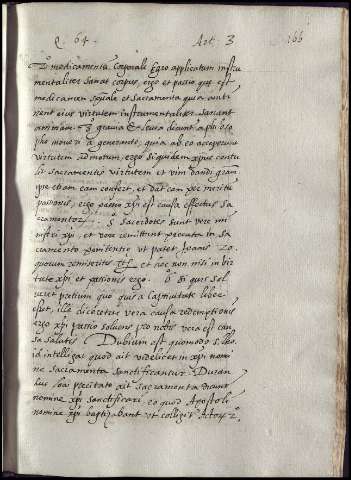 Q. 64. Art. 3 166
medicamenta corporali Egro applicatum instru
mentaliter sanat corpus, ergo et passio quę est
medicamen spũale et sacramenta quia conti
nent eius virtutem instrumentaliter sanant
animam. grauia et leuia dicunt a philoso
pho moueri a generante, quia ab eo acceperunt
virtutem ad motum, ergo siquidem xp̃us contu
lit sacramentis virtutem et vim dandi gratiam
quę etiam eam confert, et dat eam per meritũ
passionis, ergo passio xp̃i est causa effectus sa
cramentorum. § Sacerdotes sunt vere mi
nistri xp̃i, et vere remittunt peccata in sa
cramento penitentię vt patet Joanis 20.
quorum remiseritis et hoc non nisi in vir
tute xp̃i et passionis ergo. si quis sol
ueret pretium quo quis a captiuitate libera
esset, ille diceretur vera causa redemptionis
ergo xp̃i passio soluens pro nobis vera est cau
sa salutis. Dubium est quomodo
id intelligat quod ait videlicet in xp̃i nomi
ne sacramenta sanctificantur. Duran
dus loco precitato ait sacramenta dicunt
nomine xp̃i sanctificari, eo quod Apostoli
nomine xp̃i baptizabant vt colligit Actor 2.